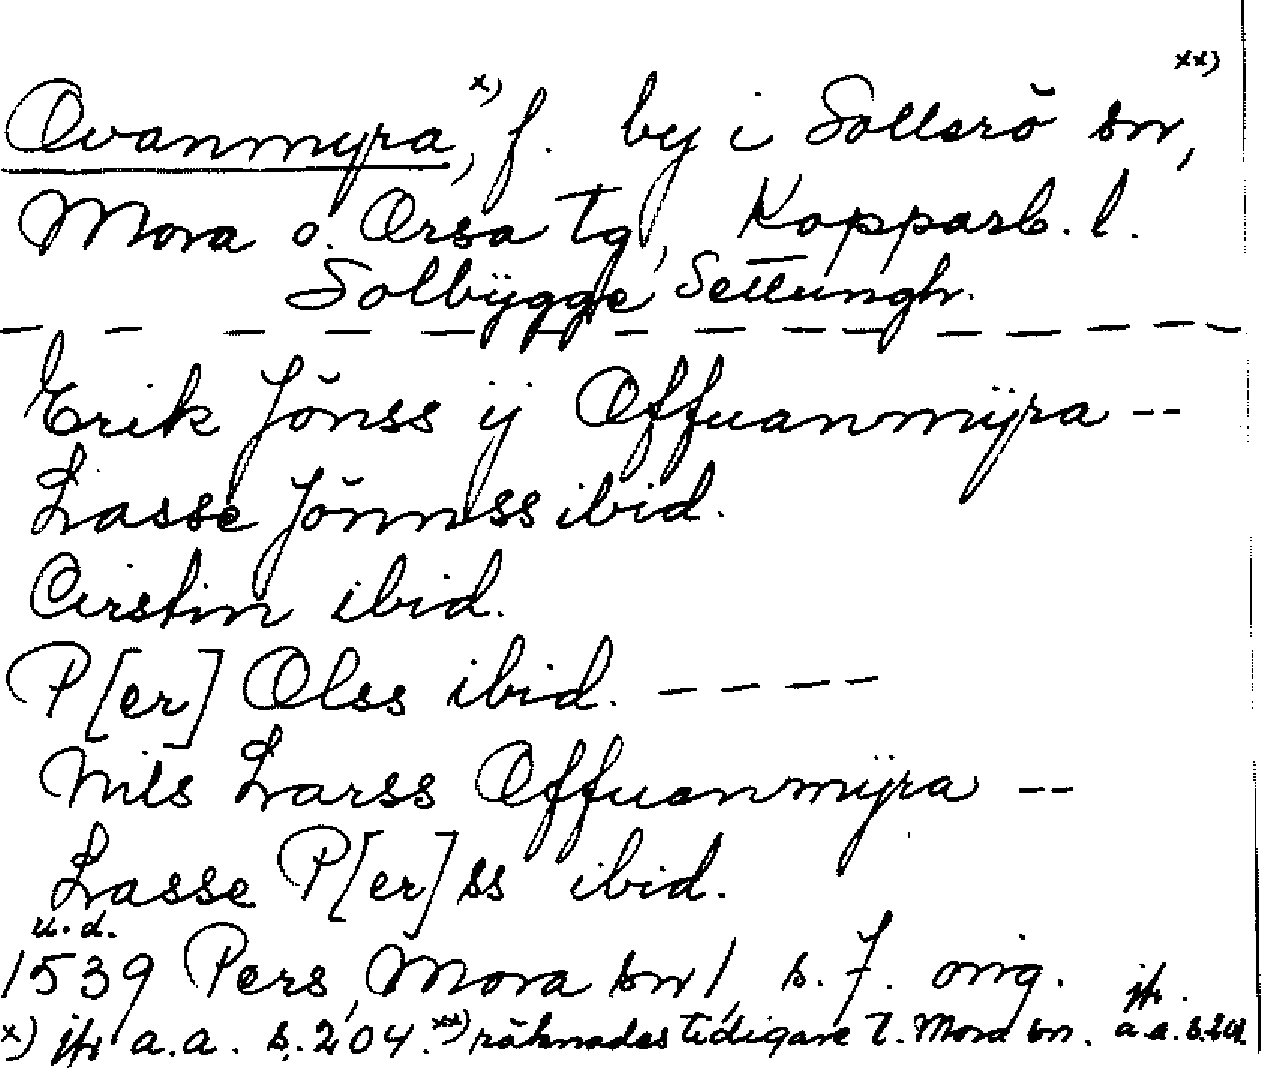 Ovanmyra,ˣ⁾ f. by i Sollerö sn,ˣˣ⁾
Mora o. Orsa tg, Kopparb. l.
Solbÿgge Settungh.
Erik Jönss ij Offuanmÿra --
Lasse Jönnss ibid.
Cirstin ibid.
P[er] Olss ibid. ----
Nils Larss Offuanmÿra --
Lasse P[er]ss ibid.
u.d.
1539 Pers, Mora sn 1, s. 7. orig.
x) jfr a.a. s. 204. xx) räknades tidigare t. Mora sn. jfr. a.a. s.